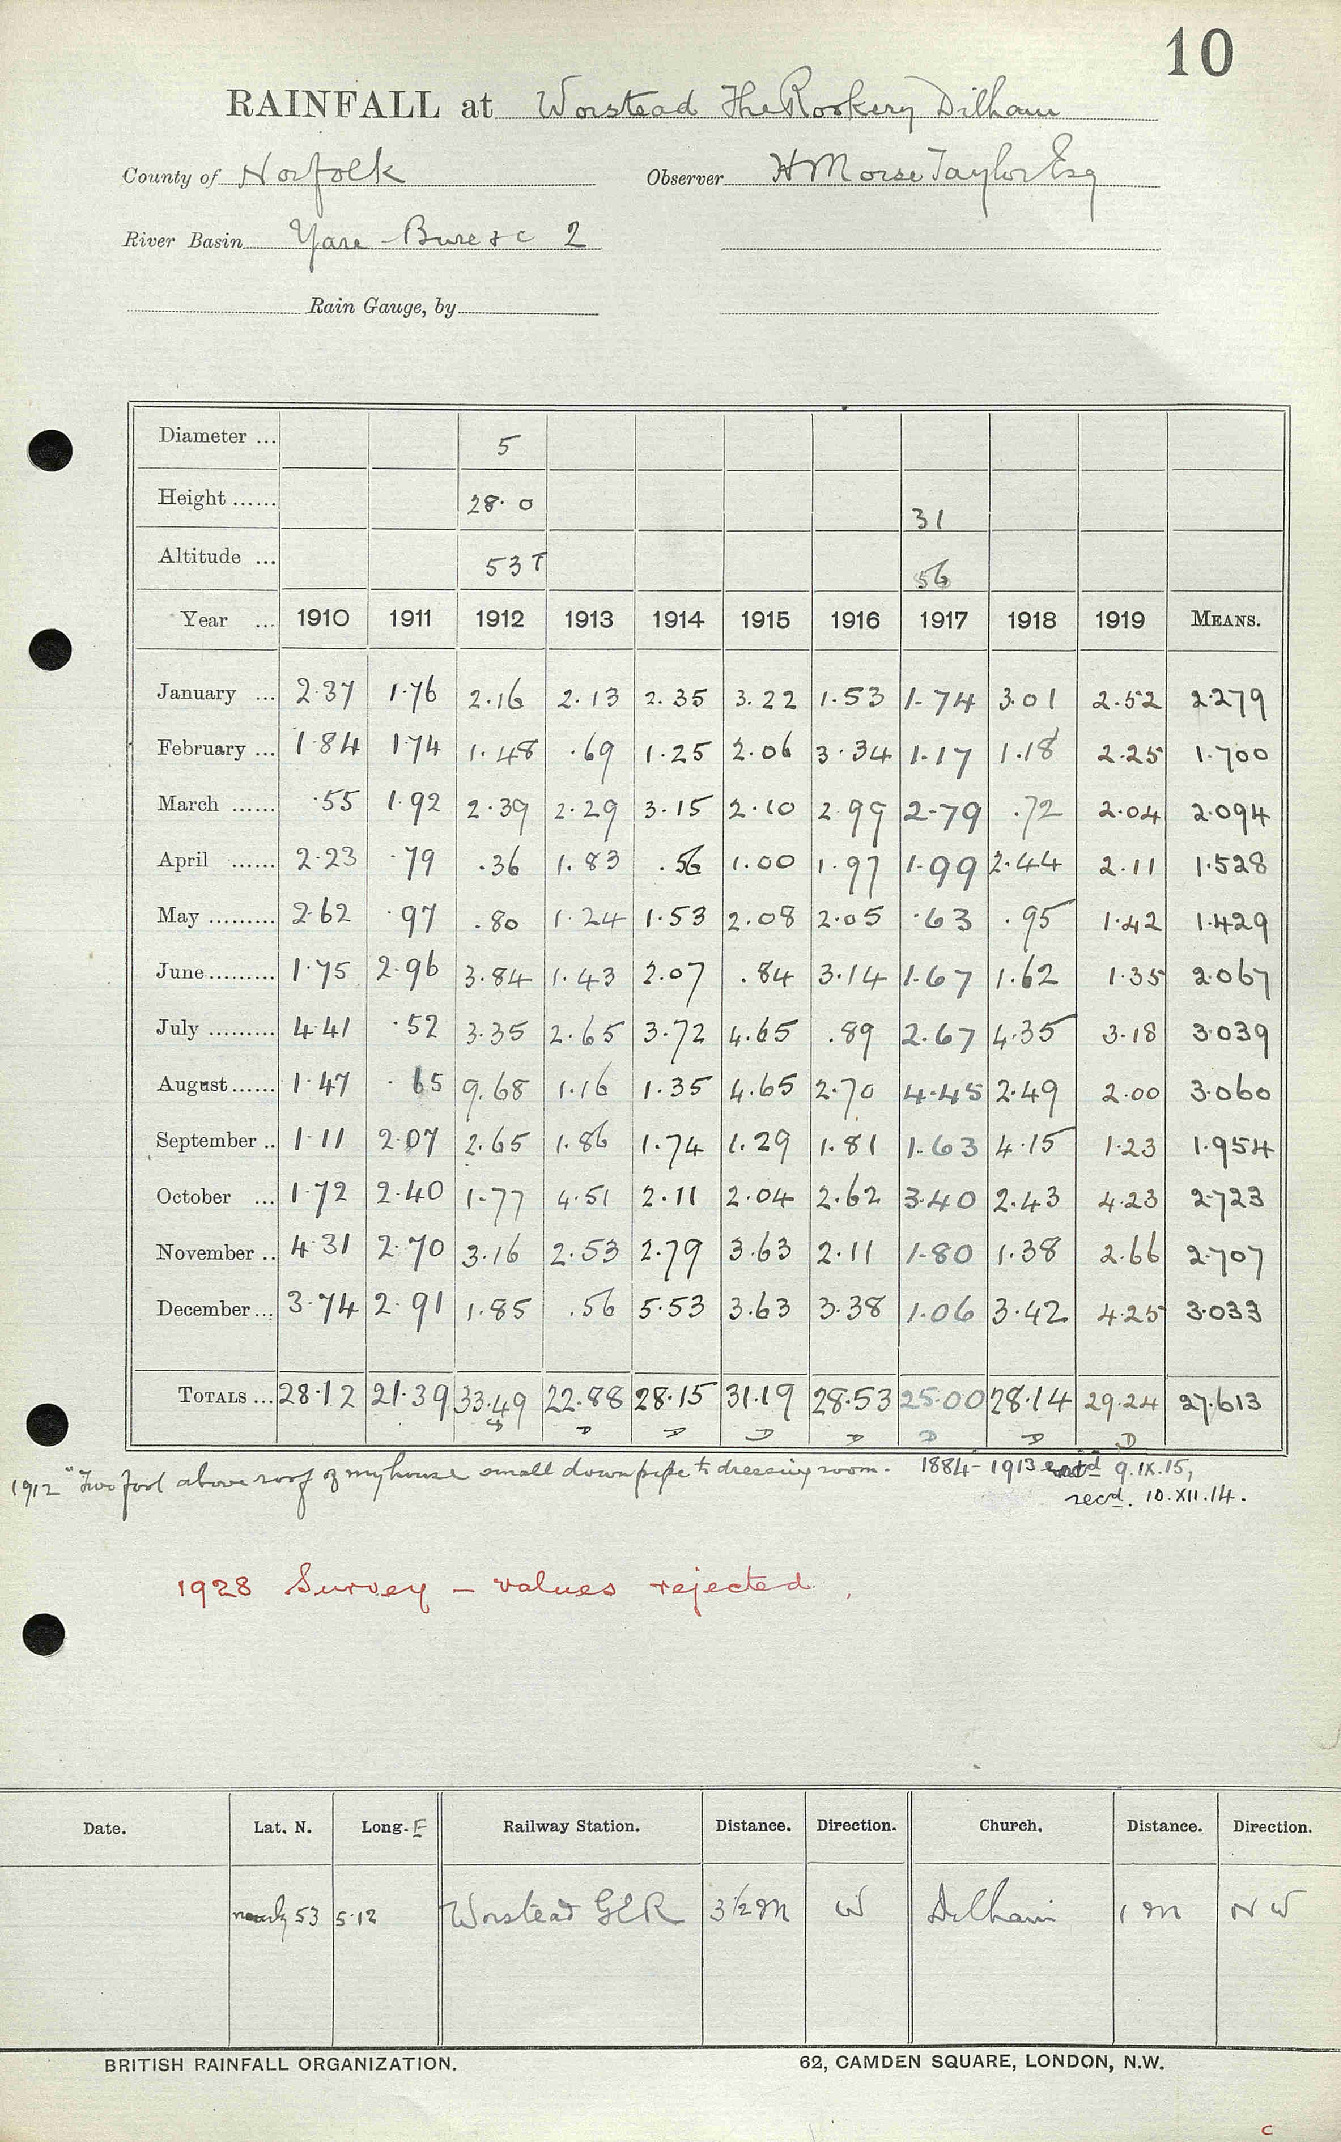 10
RAINFALL at Worstead The Rookery Dilham
County of Norfolk Observer H Morse Taylor Esq
River Basin Yare Bure &c 2
Rain Gauge, by
Diameter ... 5
Height ...... 28.0 31
Altitude ... 53 T 56
Year ... 1910 1911 1912 1913 1914 1915 1916 1917 1918 1919 MEANS.
January ... 2.37 1.76 2.16 2.13 2.35 3.22 1.53 1.74 3.01 2.52 2.279
February ... 1.84 1.74 1.48 .69 1.25 2.06 3.34 1.17 1.18 2.25 1.700
March ...... .55 1.92 2.39 2.29 3.15 2.10 2.99 2.79 .72 2.04 2.094
April ...... 2.23 .79 .36 1.83 .56 1.00 1.97 1.99 2.44 2.11 1.528
May ......... 2.62 .97 .80 1.24 1.53 2.08 2.05 .63 .95 1.42 1.429
June ......... 1.75 2.96 3.84 1.43 2.07 .84 3.14 1.67 1.62 1.35 2.067
July ......... 4.41 .52 3.35 2.65 3.72 4.65 .89 2.67 4.35 3.18 3.039
August ...... 1.47 .65 9.68 1.16 1.35 4.65 2.70 4.45 2.49 2.00 3.060
September .. 1.11 2.07 2.65 1.86 1.74 1.29 1.81 1.63 4.15 1.23 1.954
October ... 1.72 2.40 1.77 4.51 2.11 2.04 2.62 3.40 2.43 4.23 2.723
November .. 4.31 2.70 3.16 2.53 2.79 3.63 2.11 1.80 1.38 2.66 2.707
December ... 3.74 2.91 1.85 .56 5.53 3.63 3.38 1.06 3.42 4.25 3.033
TOTALS ... 28.12 21.39 33.49 22.88 28.15 31.19 28.53 25.00 28.14 29.24 27.613
D D D D D D D
1912 "Two foot above roof of my house small down pipe to dressing room. 1884-1913 9.IX.15,
recd. 10.XII.14.
1928 Survey - values rejected.
Date. Lat. N. Long. E Railway Station. Distance. Direction. Church. Distance. Direction.
nearly 53 5.12 Worstead GER 3½ M W Dilham 1 M N W
BRITISH RAINFALL ORGANIZATION. 62, CAMDEN SQUARE, LONDON, N.W.
c